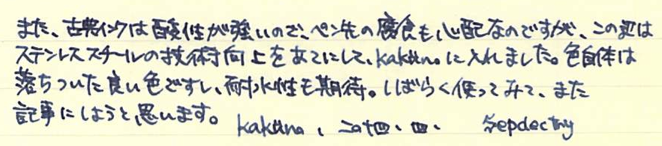 また、古典インクは酸性が強いので、ペン先の腐食も心配なのですが、この辺は
ステンレススチールの技術向上をあてにして、kakünoに入れました。色自体は
落ちついた良い色ですし、耐水性も期待。しばらく使ってみて、また
記事にしようと思います。 kaküno、